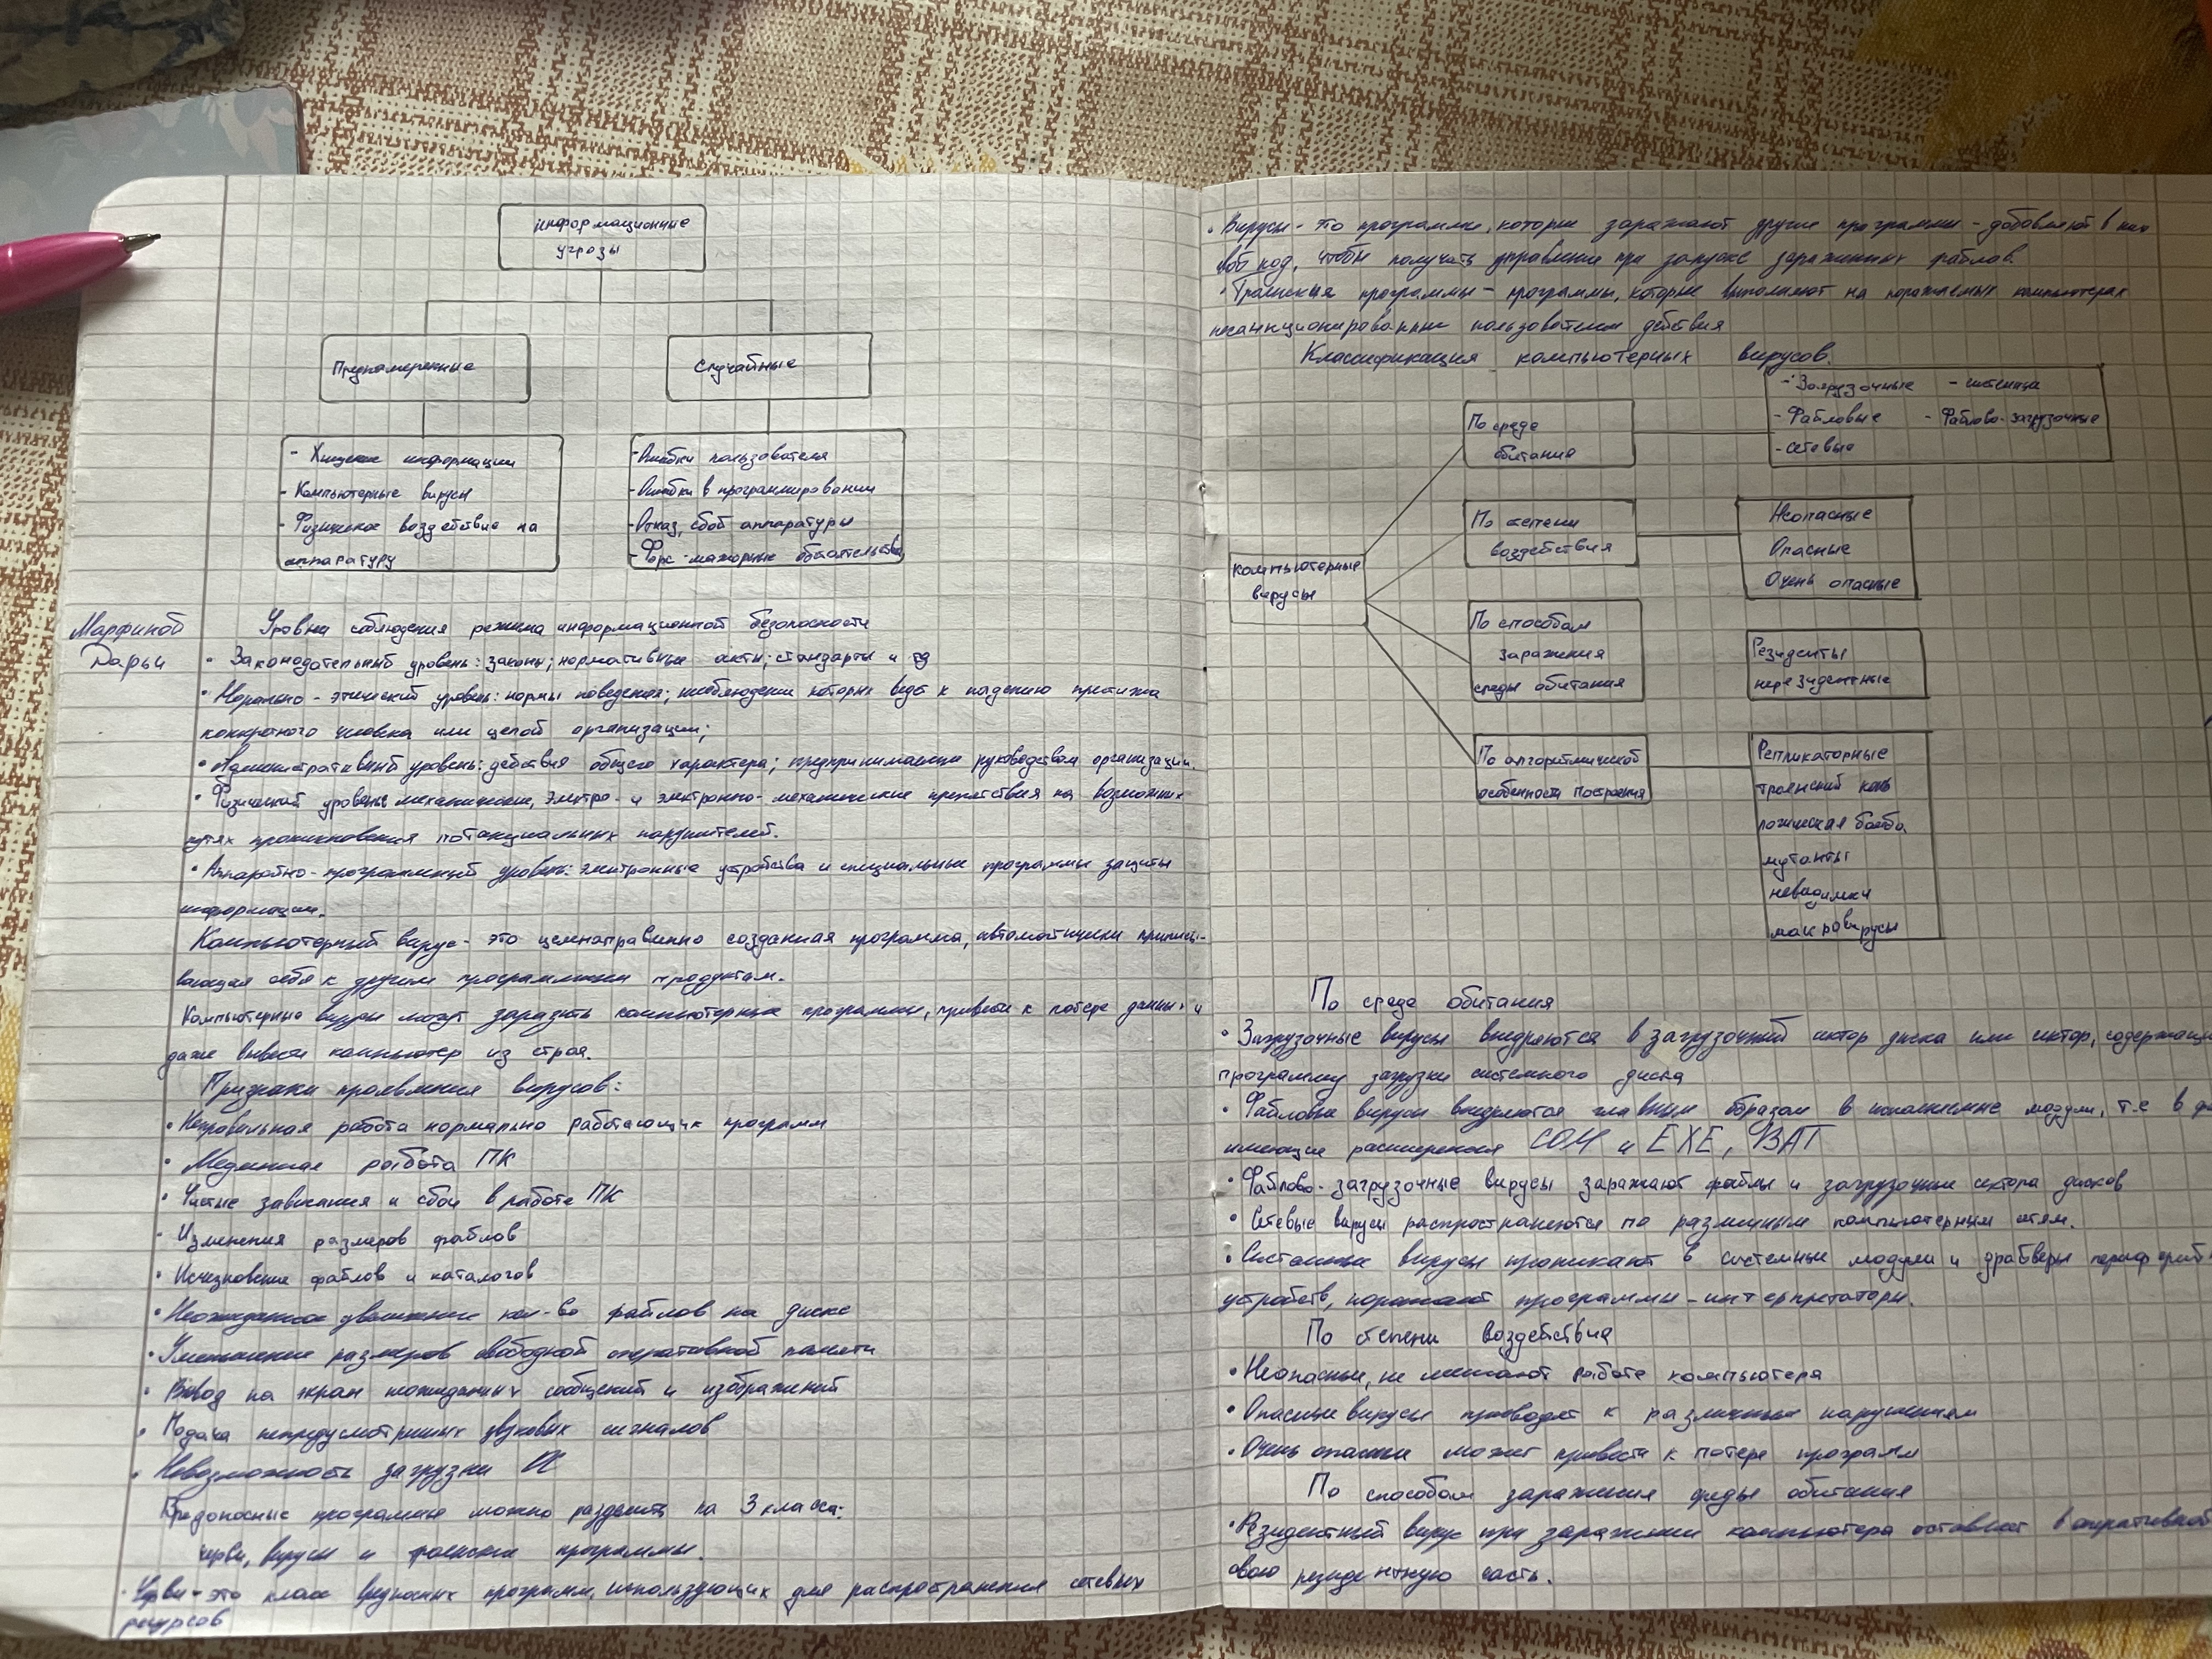 информационные
угрозы
Преднамеренные
Случайные
- Хищение информации
- Компьютерные вирусы
- Физическое воздействие на
аппаратуру
- Ошибки пользователя
- Ошибки в программировании
- Отказ, сбой аппаратуры
- Форс-мажорные обстоятельства
Марфиной
Дарьи
Уровни соблюдения режима информационной безопасности
• Законодательный уровень: законы; нормативные акты; стандарты и тд
• Морально-этический уровень: нормы поведения; несоблюдение которых ведет к падению престижа
конкретного человека или целой организации;
• Административный уровень: действия общего характера; предпринимаемые руководством организации.
• Физический уровень: механические, электро- и электронно-механические препятствия на возможных
путях проникновения потенциальных нарушителей.
• Аппаратно-программный уровень: электронные устройства и специальные программы защиты
информации.
Компьютерный вирус - это целенаправленно созданная программа, автоматически приписы-
вающая себя к другим программным продуктам.
Компьютерные вирусы могут заразить компьютерные программы, привести к потере данных и
даже вывести компьютер из строя.
Признаки проявления вирусов:
• Неправильная работа нормально работающих программ
• Медленная работа ПК
• Частые зависания и сбои в работе ПК
• Изменения размеров файлов
• Исчезновение файлов и каталогов
• Неожиданное увеличение кол-во файлов на диске
• Уменьшение размеров свободной оперативной памяти
• Вывод на экран неожиданных сообщений и изображений
• Подача непредусмотренных звуковых сигналов
• Невозможность загрузки ОС
Вредоносные программы можно разделить на 3 класса:
черви, вирусы и троянские программы.
• Черви - это класс вредоносных программ, использующих для распространения сетевых
ресурсов
• Вирусы - это программы, которые заражают другие программы - добавляют в них
свой код, чтобы получить управление при запуске зараженных файлов.
• Троянские программы - программы, которые выполняют на поражаемых компьютерах
несанкционированные пользователем действия
Классификация компьютерных вирусов.
компьютерные
вирусы
По среде
обитания
- Загрузочные - системные
- Файловые - Файлово-загрузочные
- сетевые
По степени
воздействия
Неопасные
Опасные
Очень опасные
По способам
заражения
среды обитания
Резиденты
нерезидентные
По алгоритмической
особенности построения
Репликаторные
троянский конь
логическая бомба
мутанты
невидимки
макровирусы
По среде обитания
• Загрузочные вирусы внедряются в загрузочный сектор диска или сектор, содержащи
программу загрузки системного диска
• Файловые вирусы внедряются главным образом в исполняемые модули, т.е в фа
имеющие расширения COM и EXE, BAT
• Файлово-загрузочные вирусы заражают файлы и загрузочные сектора дисков
• Сетевые вирусы распространяются по различным компьютерным сетям.
• Системные вирусы проникают в системные модули и драйверы периферий
устройств, поражают программы-интерпретаторы.
По степени воздействия
• Неопасные, не мешают работе компьютера
• Опасные вирусы приводят к различным нарушениям
• Очень опасные может привести к потере программ
По способам заражения среды обитания
• Резидентный вирус при заражении компьютера оставляет в оперативной
свою резидентную часть.